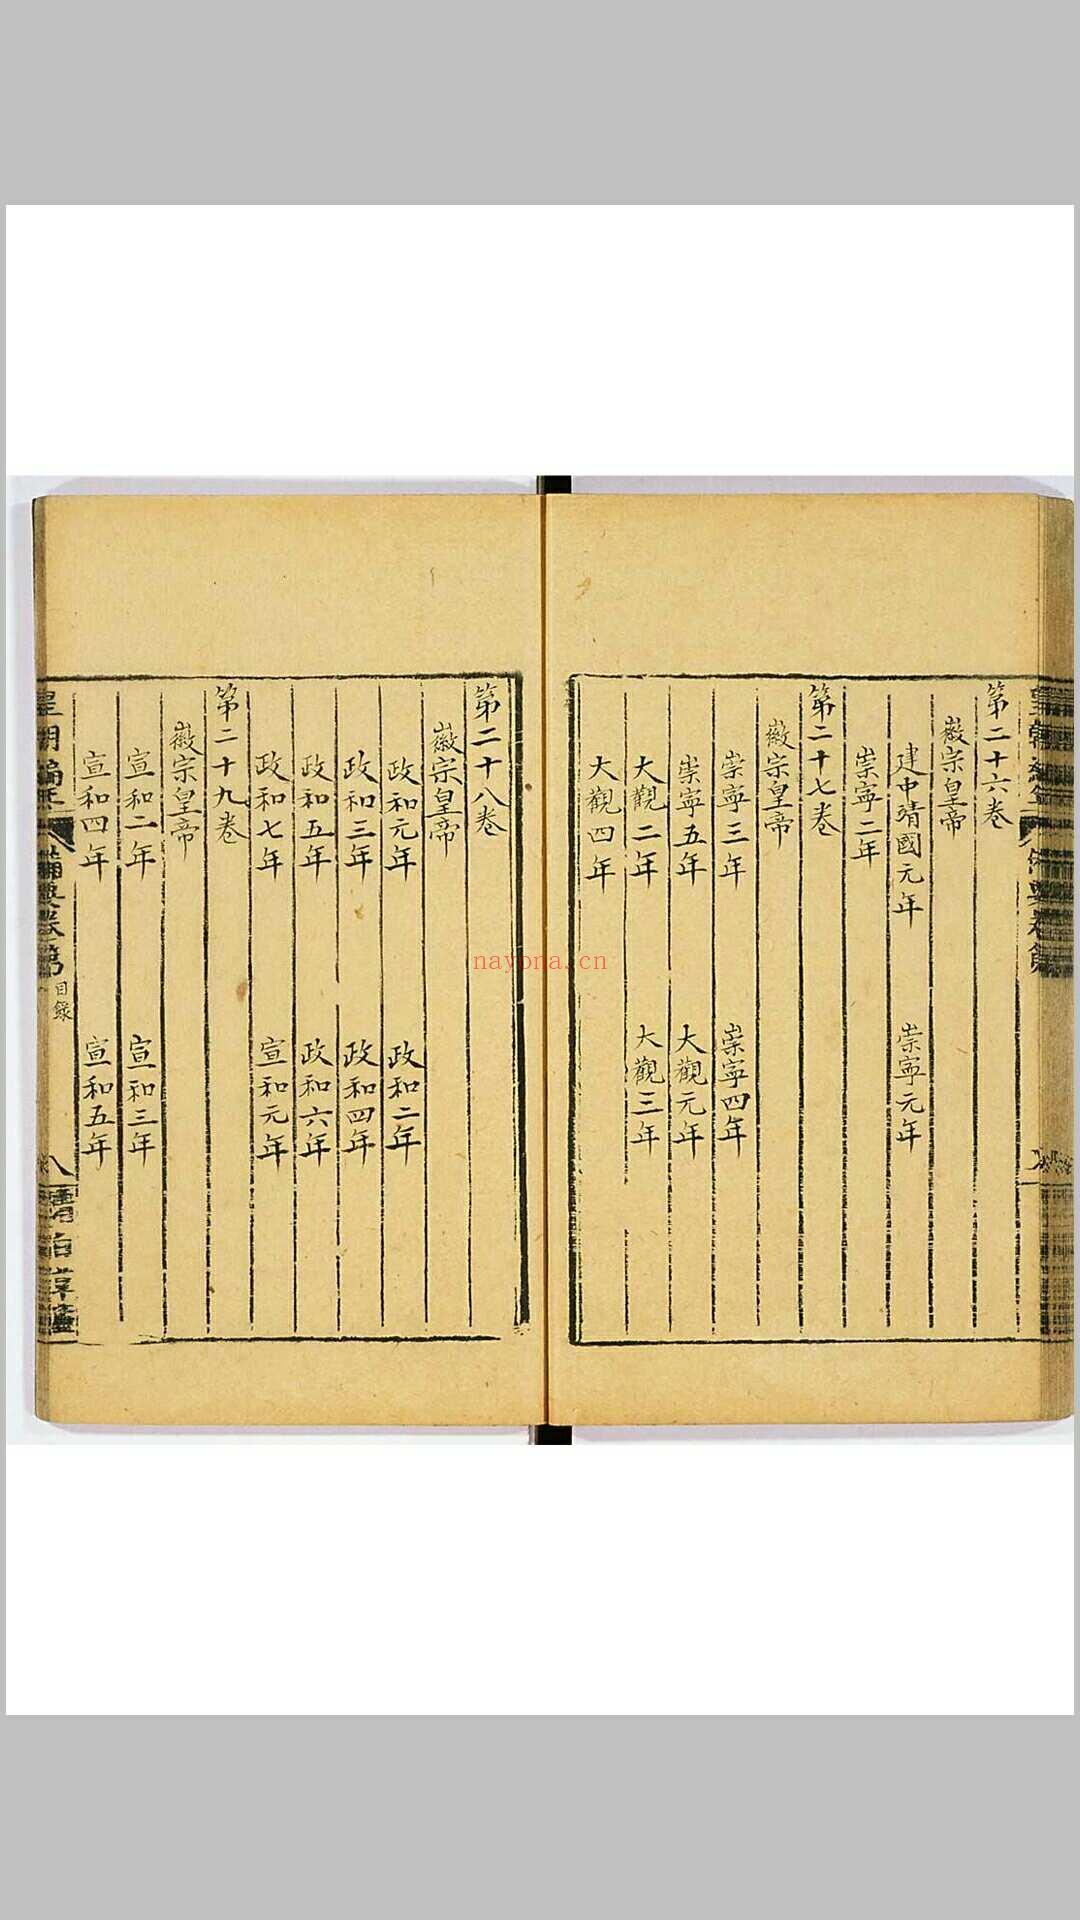 第二十六卷
徽宗皇帝
建中靖國元年 崇寧元年
崇寧二年
第二十七卷
徽宗皇帝
崇寧三年 崇寧四年
崇寧五年 大觀元年
大觀二年 大觀三年
大觀四年
第二十八卷
徽宗皇帝
政和元年 政和二年
政和三年 政和四年
政和五年 政和六年
政和七年 宣和元年
第二十九卷
徽宗皇帝
宣和二年 宣和三年
宣和四年 宣和五年
目錄
八
nayona.cn